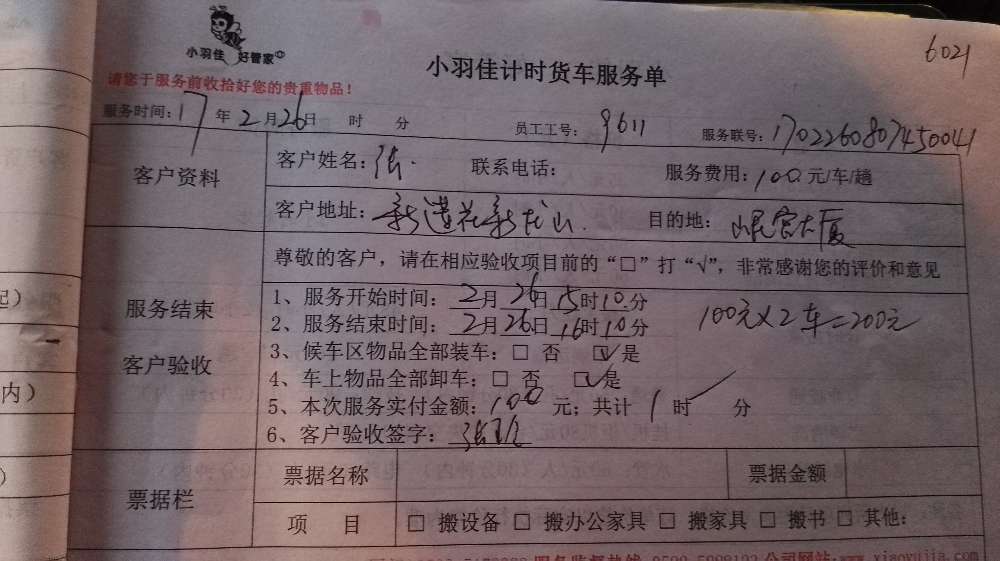 小羽佳 好管家
6021
小羽佳计时货车服务单
请您于服务前收拾好您的贵重物品!
服务时间: 17 年 2 月 26 日 时 分 员工工号: 9611 服务联号: 1702260807450041
客户资料
客户姓名: 张. 联系电话: 服务费用: 100 元/车/趟
客户地址: 新莲花新龙山. 目的地: 大厦
尊敬的客户,请在相应验收项目前的“□”打“√”,非常感谢您的评价和意见
服务结束
客户验收
1、服务开始时间: 2 月 26 日 15 时 10 分
2、服务结束时间: 2 月 26 日 16 时 10 分
100元×2车=200元
3、候车区物品全部装车: □ 否 ☑ 是
4、车上物品全部卸车: □ 否 ☑ 是
5、本次服务实付金额: 100 元;共计 1 时 分
6、客户验收签字: 张
票据栏
票据名称 票据金额
项 目 □ 搬设备 □ 搬办公家具 □ 搬家具 □ 搬书 □ 其他:
内)